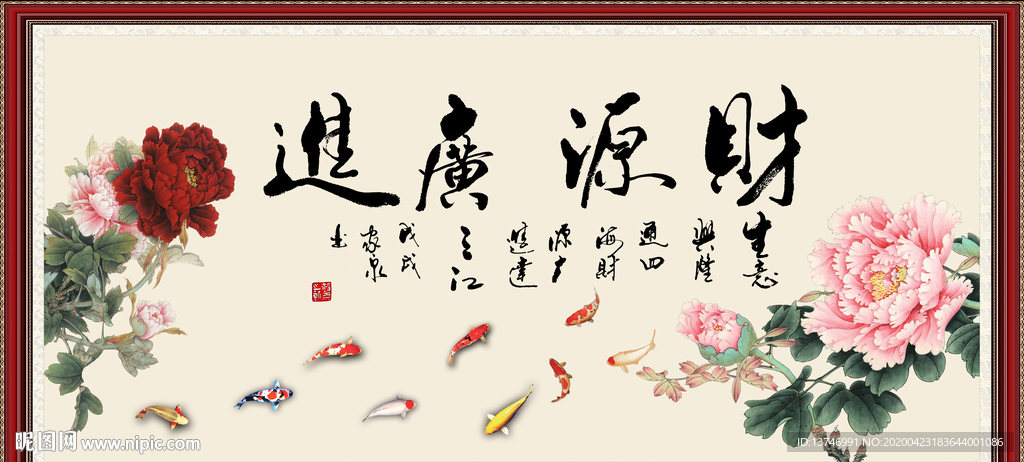 財源廣進
生意
興隆
通四
海財
源广
進達
三江
戊戌
家泉
书
昵图网 www.nipic.com
ID:13746991 NO:20200423183644001086